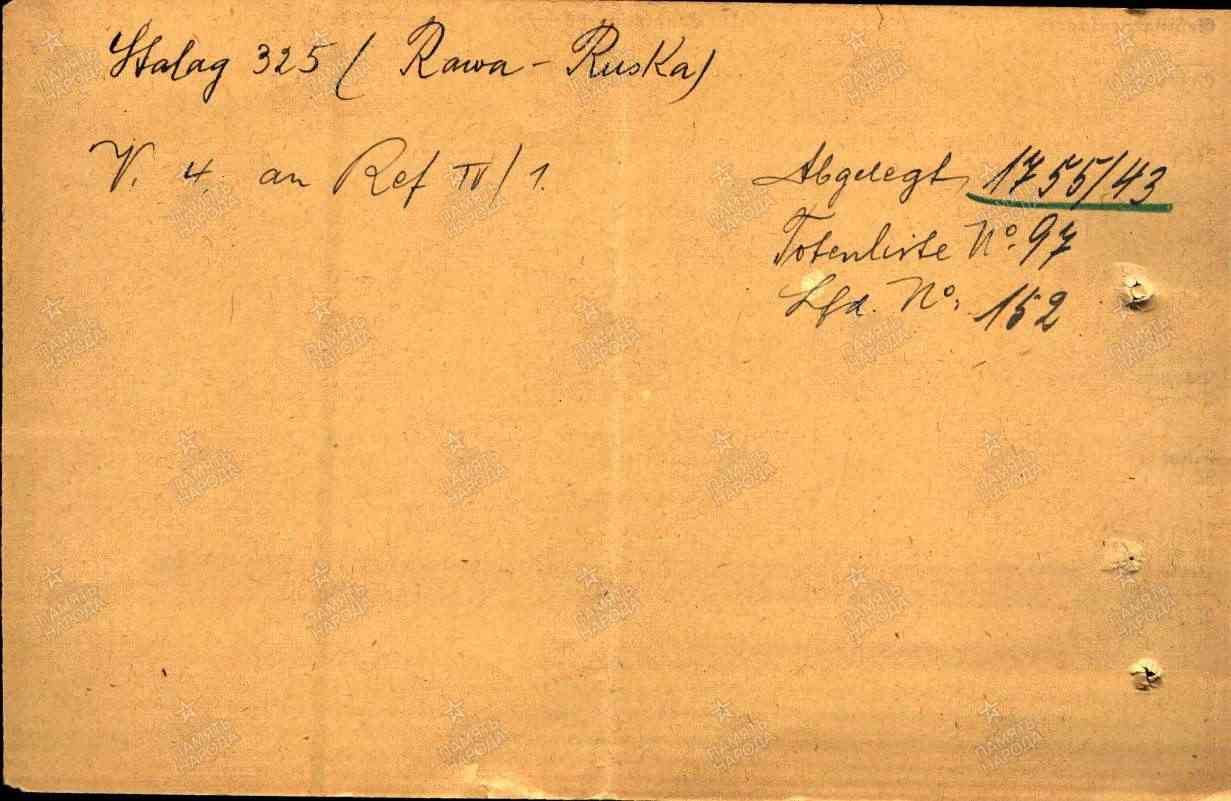 Stalag 325 ( Rawa - Ruska)
V. 4. an Ref IV/1.
Abgelegt 1755/43
Totenliste No. 97
Lfd. No. 152
ПАМЯТЬ НАРОДА